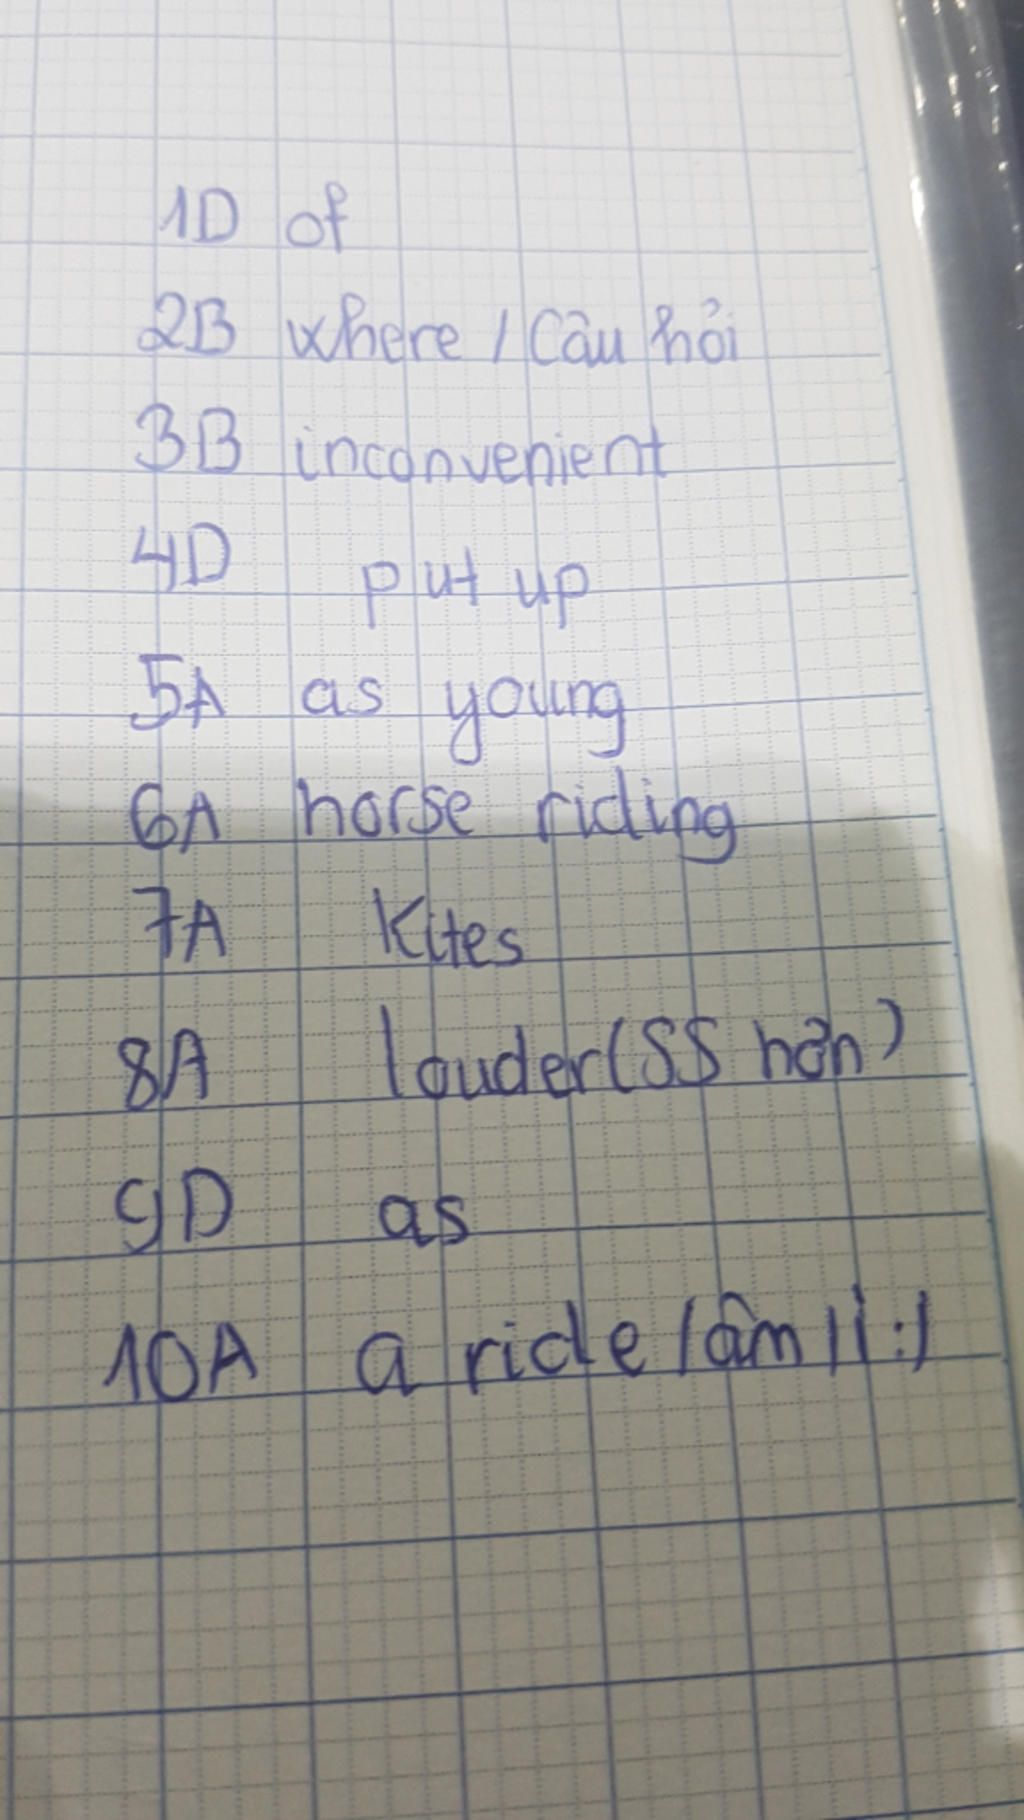 1D of
2B where / Câu hỏi
3B inconvenient
4D put up
5A as young
6A horse riding
7A Kites
8A louder (SS hơn)
9D as
10A a ride